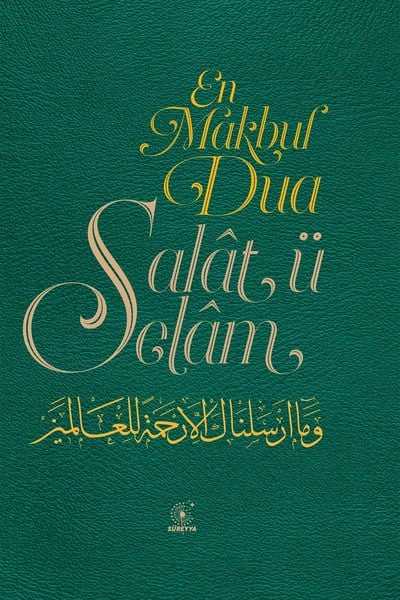 En
Makbul
Dua
Salât ü
Selâm
وَمَا أَرْسَلْنَاكَ إِلَّا رَحْمَةً لِلْعَالَمِينَ
SÜREYYA